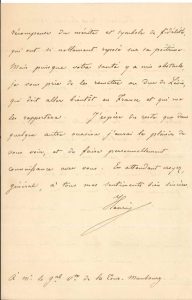 récompense du mérite et symbole de fidélité,
qui ont si noblement reposé sur sa poitrine.
Mais puisque votre santé y a mis obstacle,
je vous prie de les remettre au duc de Lévis,
qui doit aller bientôt en France et qui me
les rapportera. J'espère du reste que dans
quelque autre occasion j'aurai le plaisir de
vous voir, et de faire personnellement
connaissance avec vous. En attendant croyez,
général, à tous mes sentiments bien sincères.
Henri
À Mr. le gal. Vte. de la Tour-Maubourg